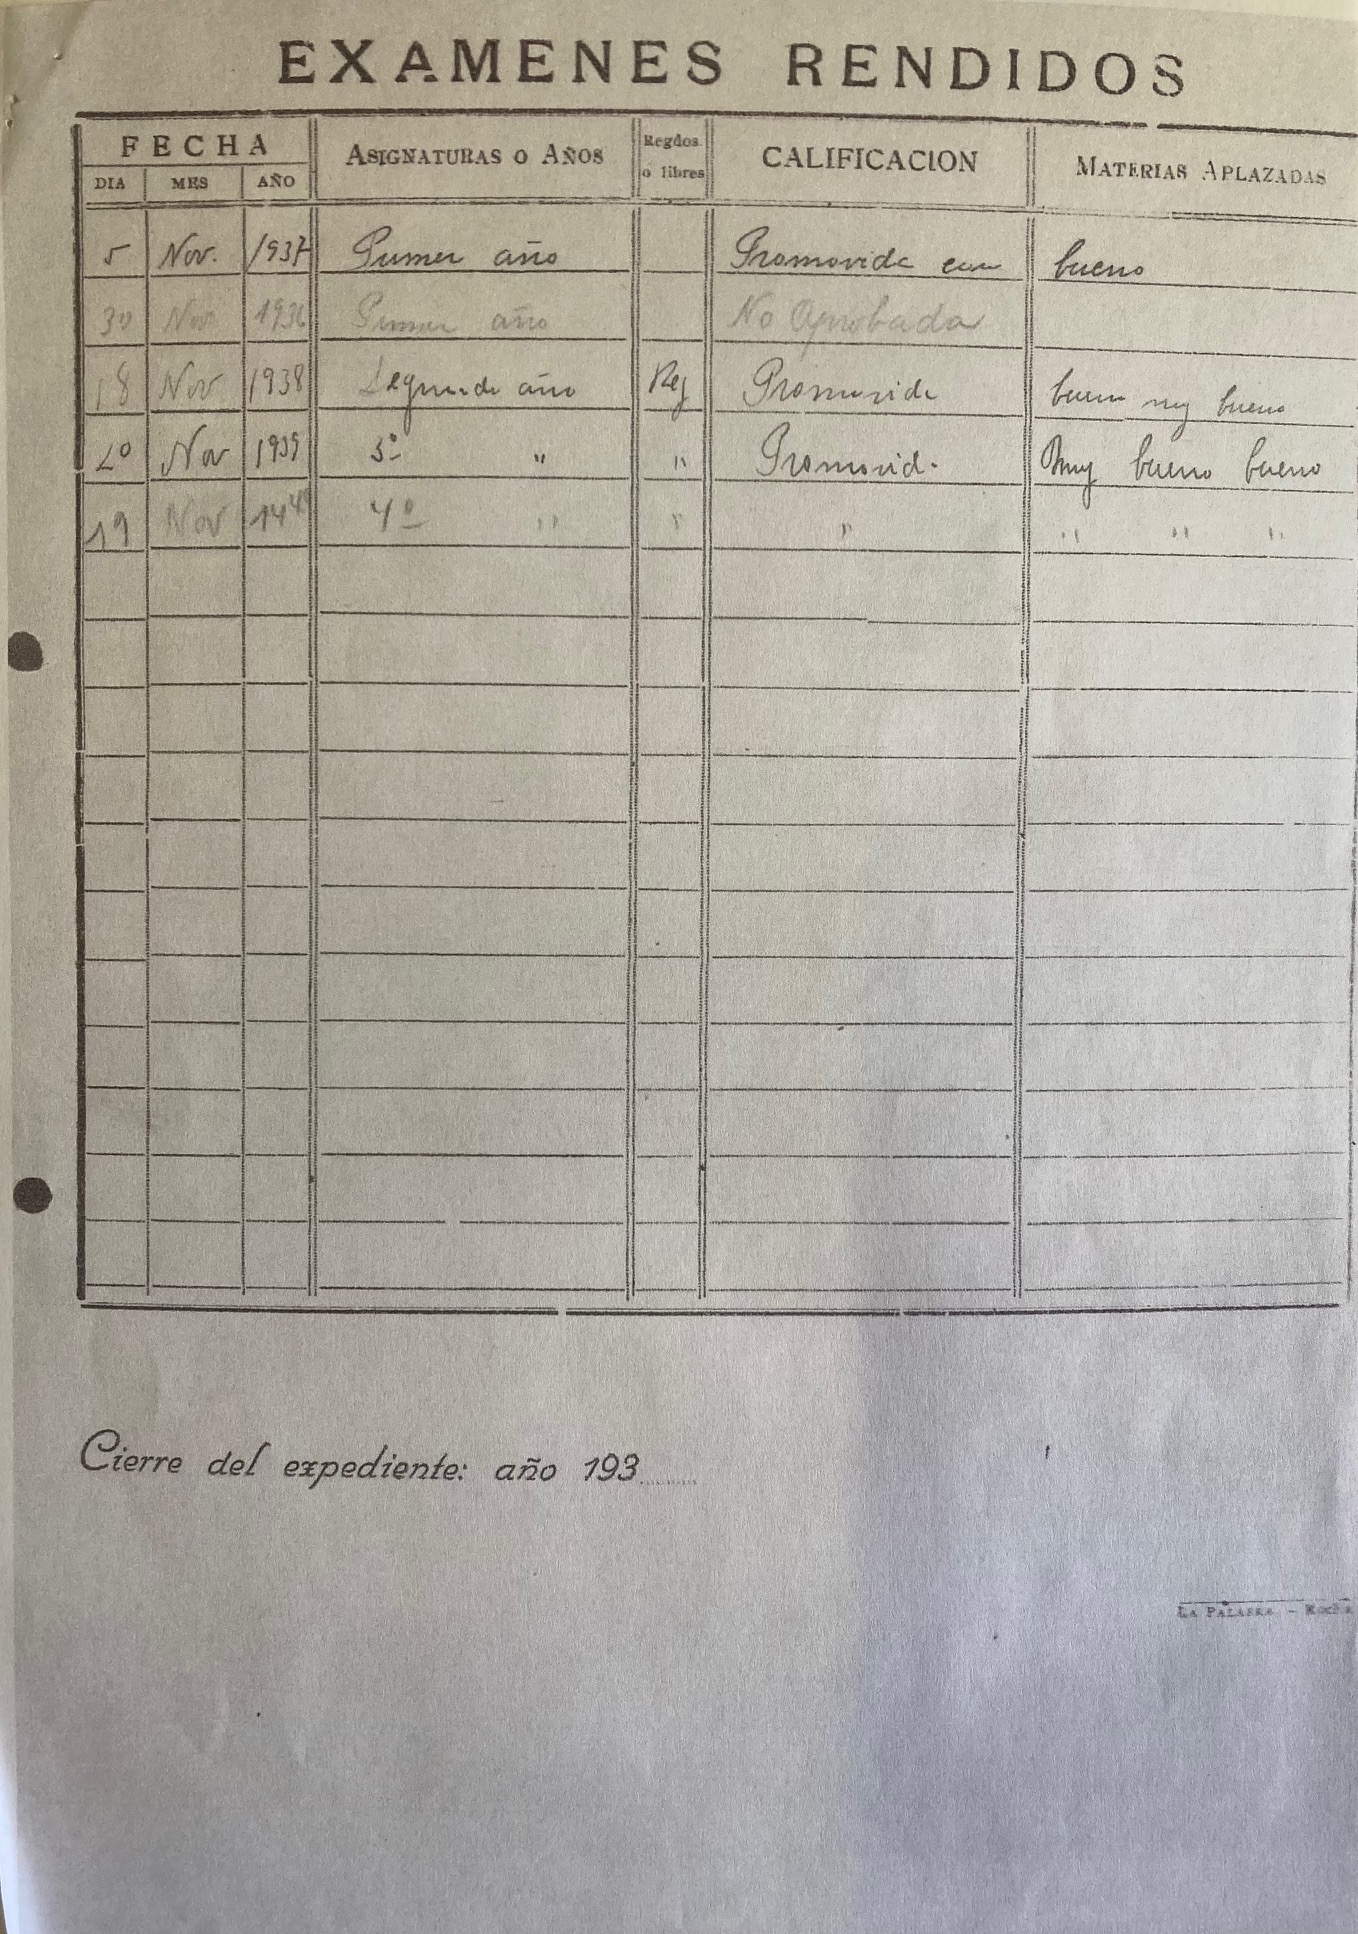 EXAMENES RENDIDOS
FECHA ASIGNATURAS O AÑOS Regdos. o libres CALIFICACION MATERIAS APLAZADAS
DIA MES AÑO
5 Nov. 1937 Primer año Promovida con bueno
30 Nov 1936 Primer año No Aprobada
18 Nov 1938 Segundo año Reg Promovida bueno muy bueno
20 Nov 1939 3º " " Promovid. Muy bueno bueno
19 Nov 4º " " " " " "
Cierre del expediente: año 193
LA PALABRA - ROCHA